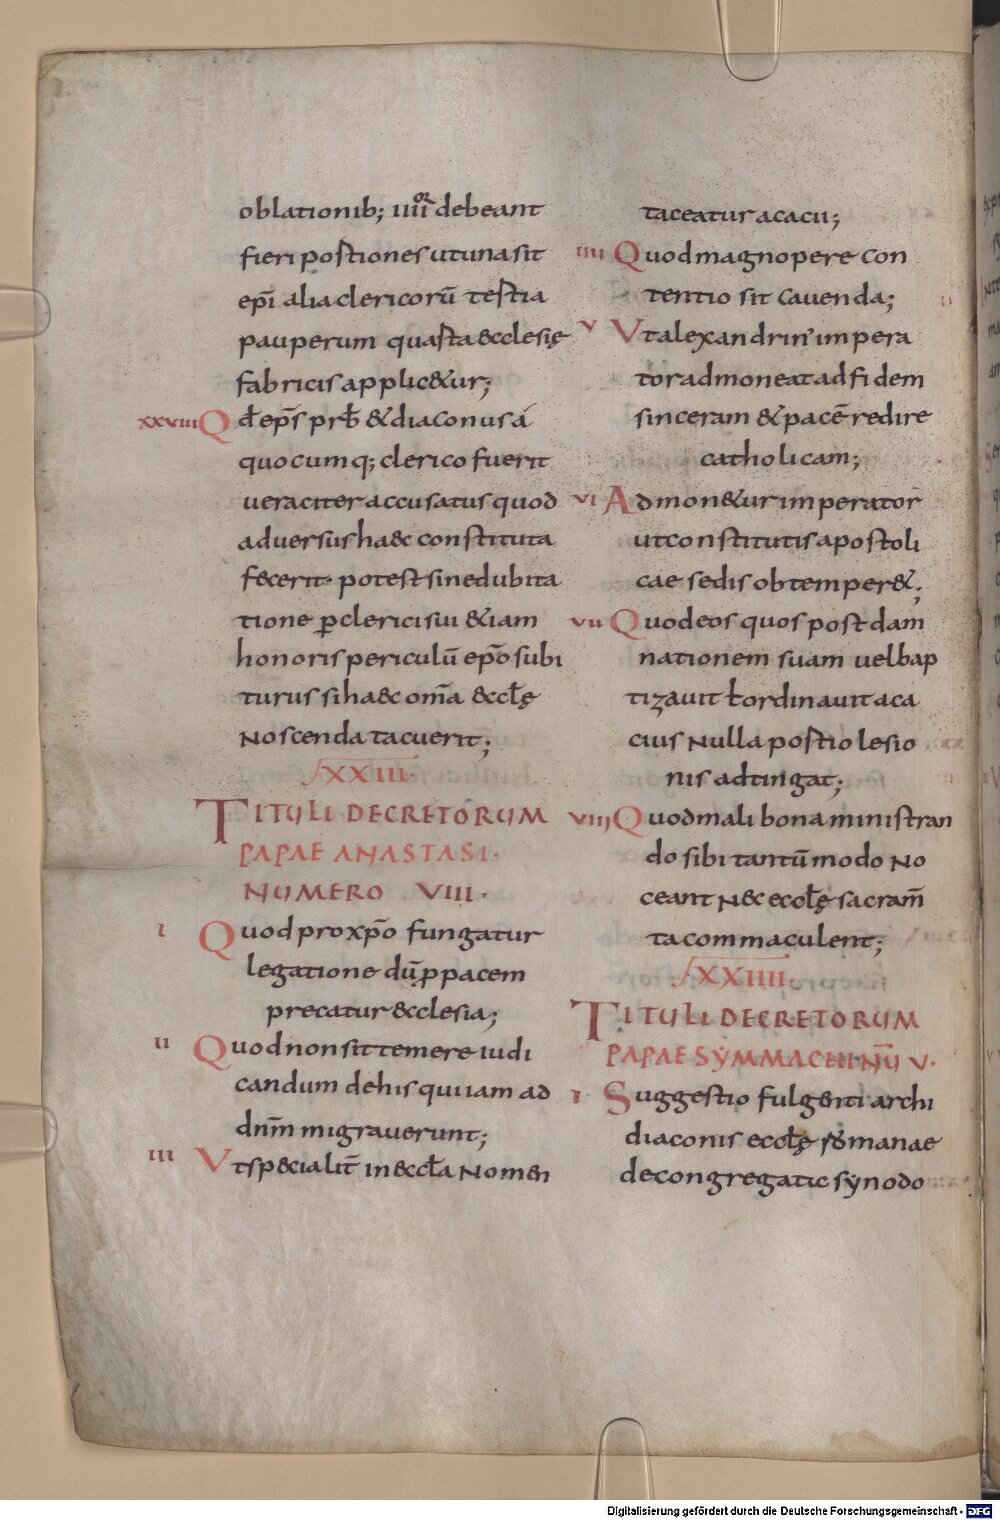 oblationib; iiii^or debeant
fieri postiones ut una sit
epi̅ alia clericoru̅ testia
pauperum quasta &cclesię
fabricis applic&ur;
xxviii Qd̅ ep̅s prb̅ & diaconus a
quocumq; clerico fuerit
veraciter accusatus quod
adversus haec constituta
fecerit potest sine dubita
tione p̲ clerici sui &iam
honoris periculu̅ ep̅o subi
turus si haec om̅a eccl̅ę
Noscenda tacuerit;
XXIII.
TITULI DECRETORUM
PAPAE ANASTASI.
NUMERO VIII.
i Quod pro xp̅o fungatur
legatione du̅ p̲ pacem
precatur &cclesia;
ii Quod non sit temere iudi
candum de his qui iam ad
dn̅m migraverunt;
iii Ut specialit̅ in eccl̅a Nomen
taceatur acacii;
iiii Quod magnopere con
tentio sit cavenda;
v Ut alexandrin' impera
tor admoneat ad fidem
sinceram & pace̅ redire
catholicam;
vi Admon&ur imperator
ut constitutis apostoli
cae sedis obtemper&;
vii Quod eos quos post dam
nationem suam vel bap
tizavit ł ordinavit aca
cius Nulla postio lesio
nis adtingat;
viii Quod mali bona ministran
do sibi tantu̅modo No
ceant Nec eccl̅ę sacram̅
ta commaculent;
XXIIII.
TITULI DECRETORUM
PAPAE SYMMACHI NU̅ V.
i Suggestio fulgenti archi
diaconis eccl̅ę romanae
de congregatic synodo
Digitalisierung gefördert durch die Deutsche Forschungsgemeinschaft - DFG